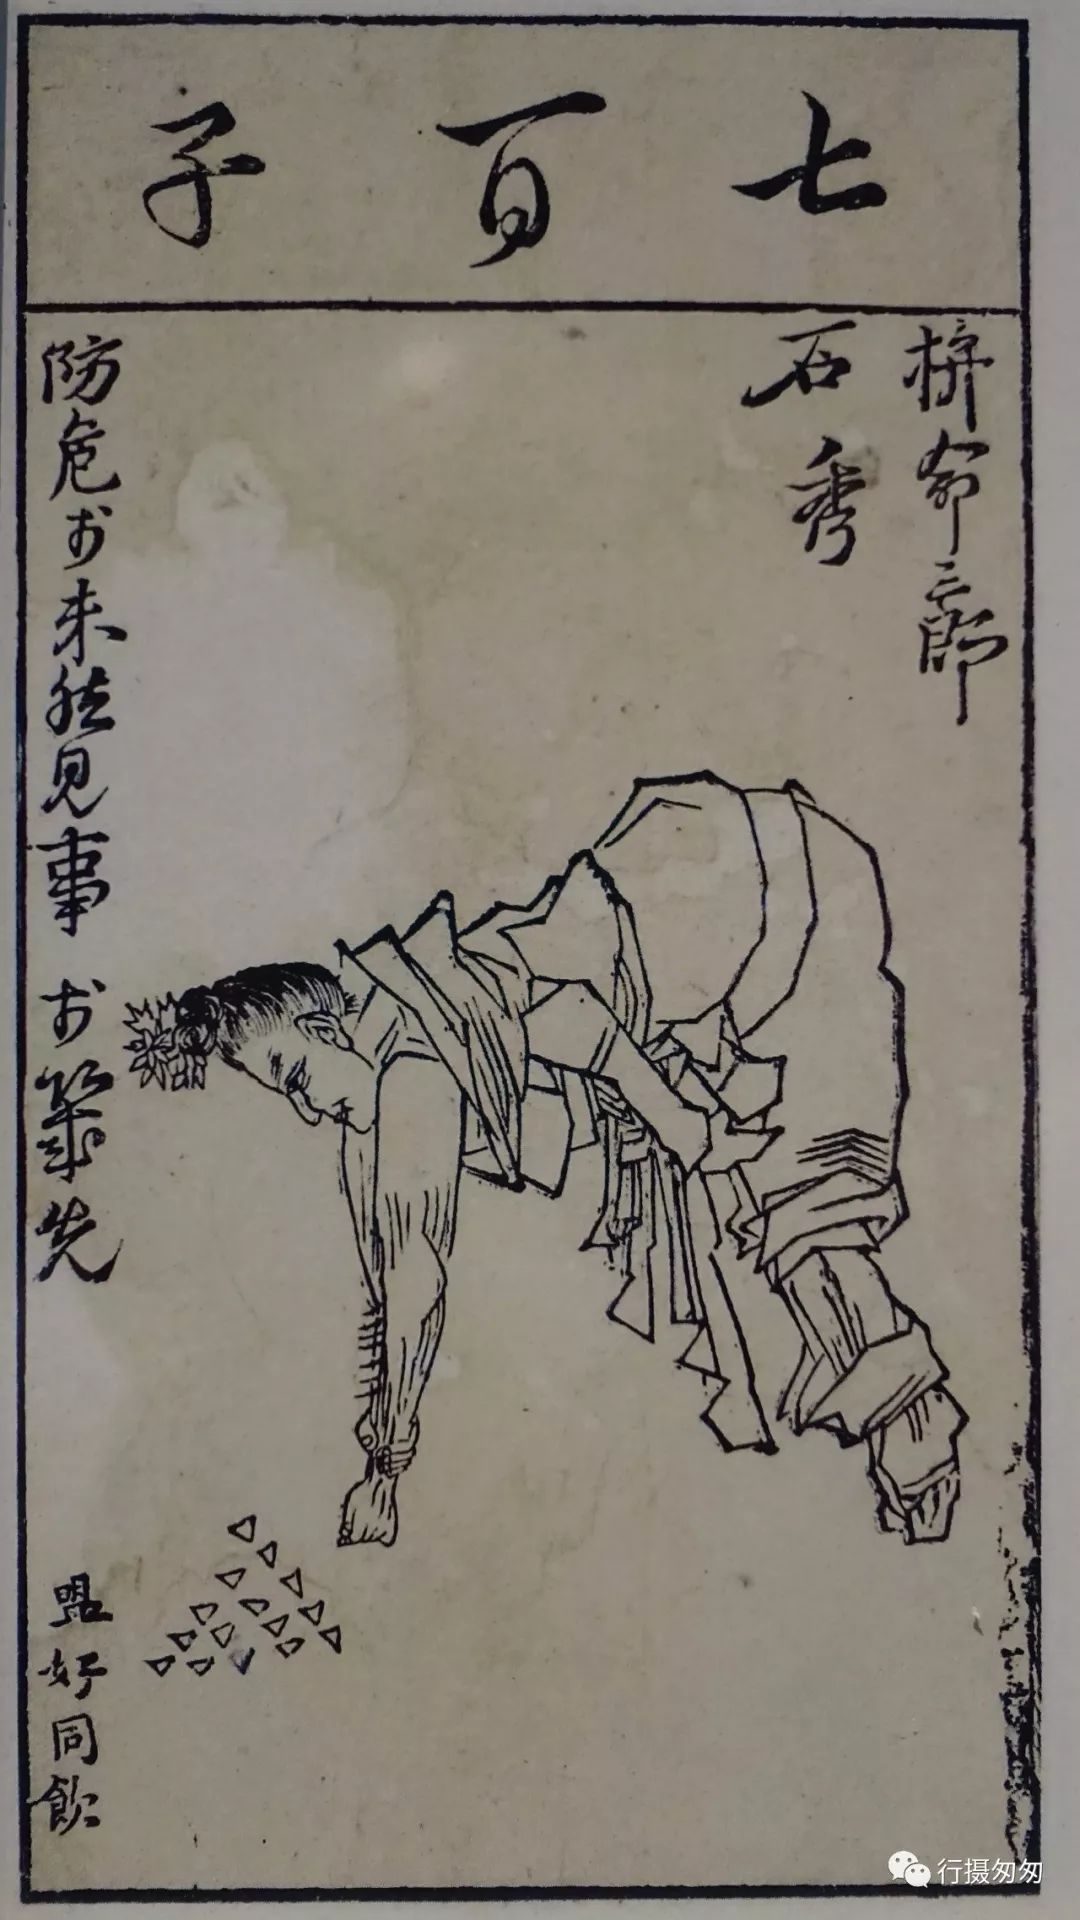 七百子
拚命三郎
石秀
防危於未然見事於幾先
盟好同飲
行摄匆匆